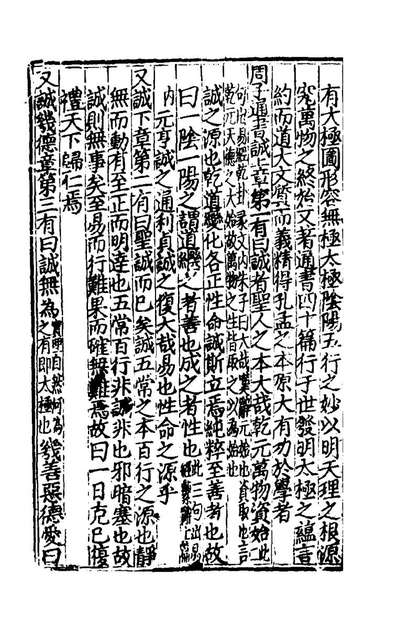 有太極圖形容無極太極陰陽五行之妙以明天理之根源
究萬物之終始又著通書四十篇行于世發明太極之蘊言
約而道大文質而義精得孔孟之本原大有功於學者
周子通書誠上章第一有曰誠者聖人之本大哉乾元萬物資始此
誠之源也乾道變化各正性命誠斯立焉純粹至善者也故
曰一陰一陽之謂道繼之者善也成之者性也此三句出易
元亨誠之通利貞誠之復大哉易也性命之源乎
又誠下章第二有曰聖誠而已矣誠五常之本百行之源也靜
無而動有至正而明達也五常百行非誠非也邪暗塞也故
誠則無事矣至易而行難果而確無難焉故曰一日克己復
禮天下歸仁焉
又誠幾德章第三有曰誠無為之有即太極也幾善惡德愛曰